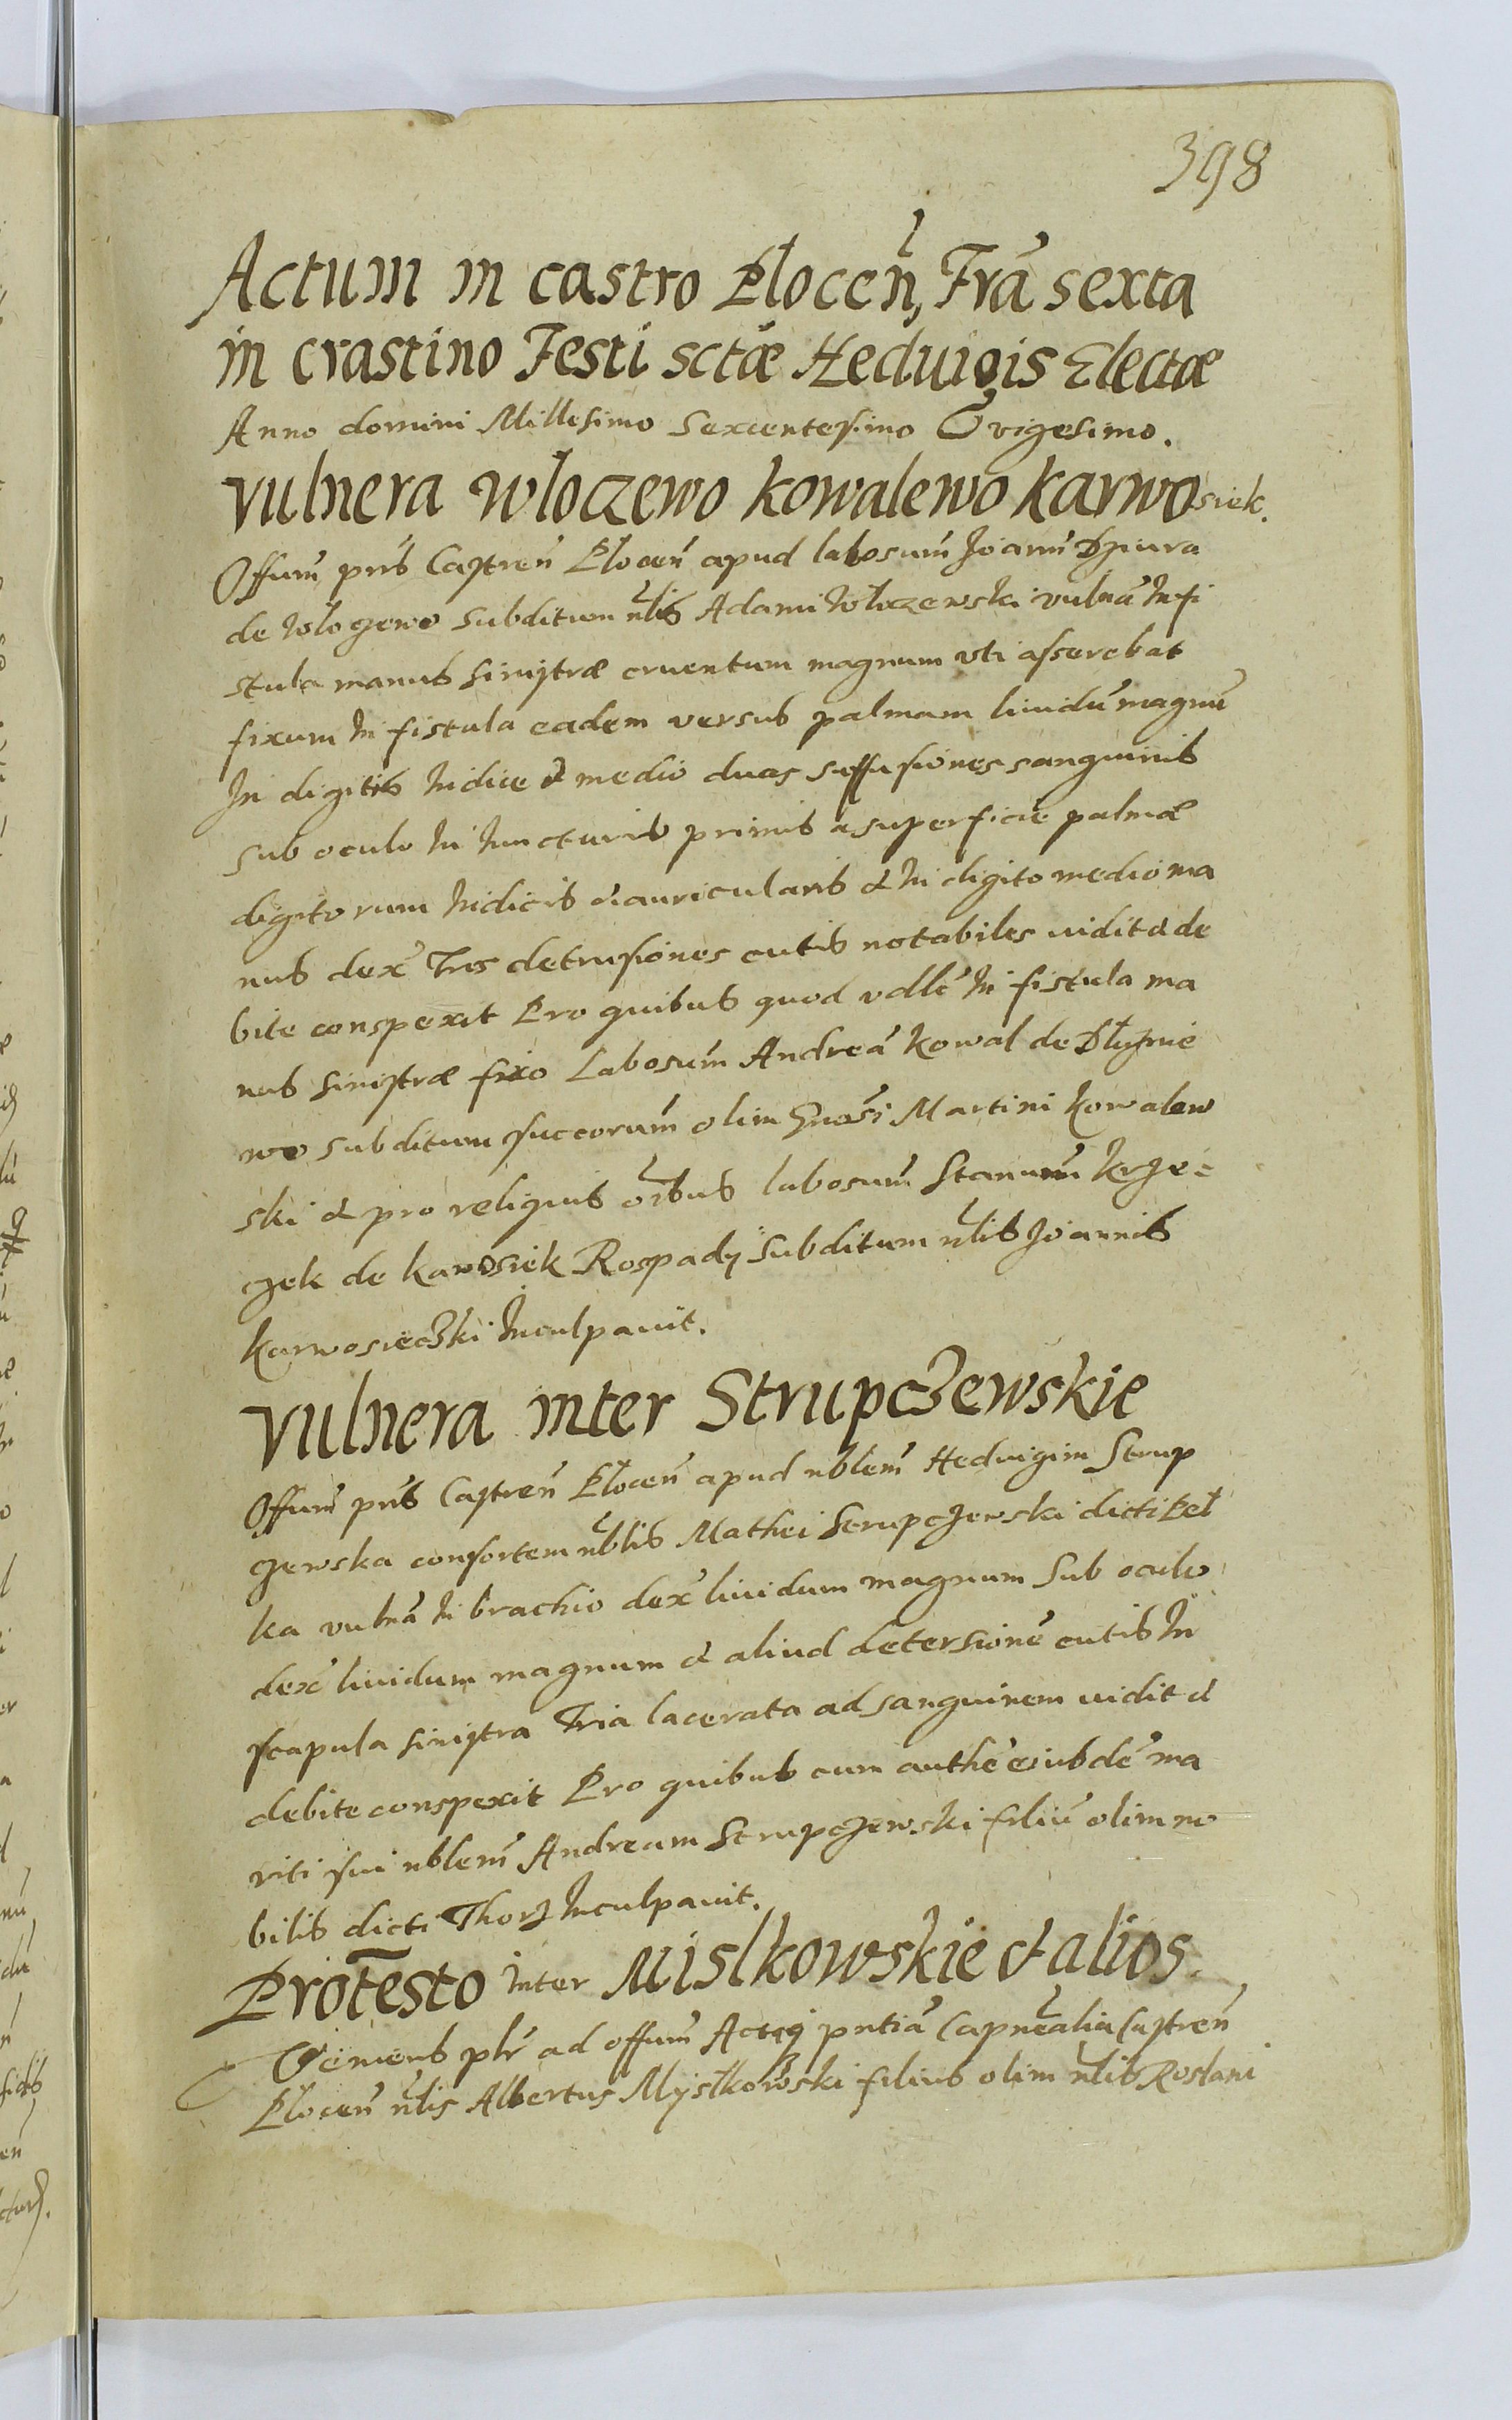 398
Actum in castro Płoceñ, Frã sexta
in crastino Festi sctæ Heduigis Electæ
Anno domini Millesimo Sexcentesimo vigesimo.
Vulnera Wloczewo Kowalewo Karwosiek.
Offum pñs Castreñ Płoceñ apud labosum Joannẽ Dziura
de Wloczewo subditum nlis Adami Wloczewski vulnã in fi
stula manus sinistræ cruentum magnum vti asserebat
fixum in fistula eadem versus palmam liuidũ magnũ
In digitis indice & medio duas suffusiones sanguinis
sub oculo in iuncturis primis a superficie palmæ
digitorum indicis & auricularis & in digito medio ma
nus dex Tres detrusiones cutis notabiles vidit & de
bite conspexit Pro quibus quod in fistula ma
nus sinistræ fixo Labosum Andreã Kowal de Dłużnie
wo subditum succorum olim Martini Kowalew
ski & pro reliquis oibus labosum Stanum Krze=
czek de Karwosiek Rospady subditum nlis Joannis
Karwosieczki inculpauit.
Vulnera inter Strupczewskie
Offum pñs Castreñ Płoceñ apud nblem Heduigim Strup
czewska consortem nblis Mathei Strupczewski dicti Peł
ka vulnã in brachio dex liuidum magnum sub oculo
dex liuidum magnum & aliud detersionẽ cutis in
scapula sinistra Tria lacerata ad sanguinem vidit &
debite conspexit Pro quibus cum authẽ eiusdẽ ma
riti sui nblem Andream Strupczewski filiũ olim no
bilis dicti Thorz inculpauit.
Protesto inter Mislkowskie & alios.
Veniens plr ad offum Actaq pntiã Capnealia Castreñ
Płoceñ nlis Albertus Mystkowski filius olim nlis Rosłani